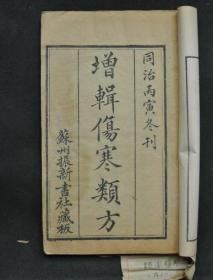 同治丙寅冬刊
增輯傷寒類方
蘇州振新書社藏板